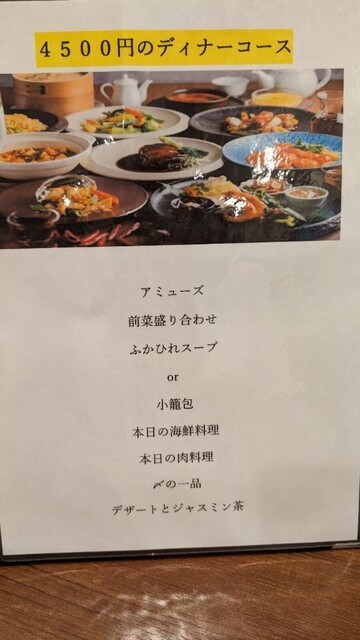 ４５００円のディナーコース
アミューズ
前菜盛り合わせ
ふかひれスープ
or
小籠包
本日の海鮮料理
本日の肉料理
〆の一品
デザートとジャスミン茶